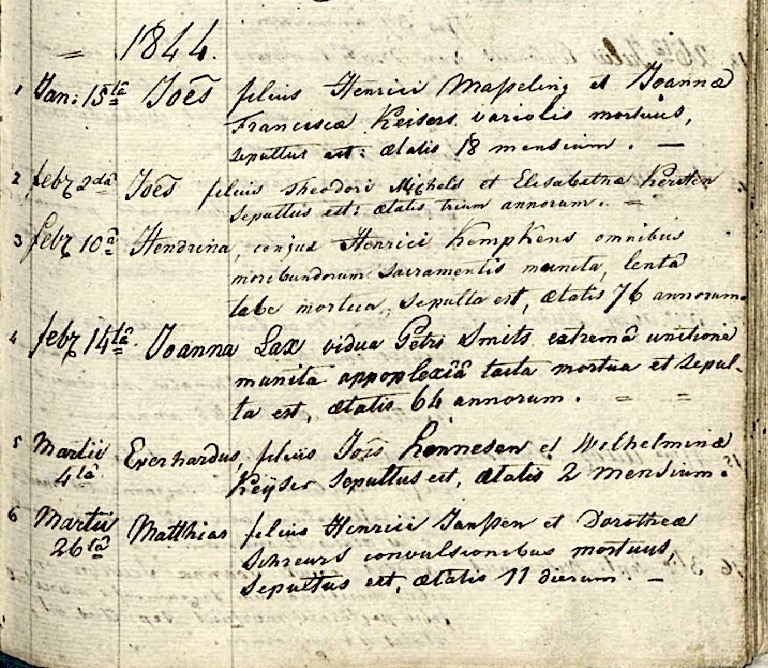 = 1844.
1 Jan: 15tâ Joēs filius Henrici Masseling et Joannæ
Franciscæ Keisers variolis mortuus,
sepultus est: ætatis 18 mensium. —
2 feb7 2dâ Joēs filius Theodori Michels et Elisabethæ Kersten
Sepultus est: ætatis trium annorum. =
3 feb7 10â Hendrina, conjux Henrici Kempkens omnibus
moribundorum Sacramentis munita, lentâ
tabe mortua, sepulta est, ætatis 76 annorum.
4 feb7 14tâ Joanna Lax vidua Petri Smits extremâ unctione
munita appoplexiâ tacta mortua et sepul-
ta est, ætatis 64 annorum. = =
5 Martii 4tâ Everhardus, filius Joīs Hennesen et Wilhelminæ
Keijser Sepultus est, ætatis 2 mensium.
6 Martii 26tâ Matthias filius Henrici Janssen et Dorotheæ
Schreurs convulsionibus mortuus,
Sepultus est, ætatis 11 dierum. —